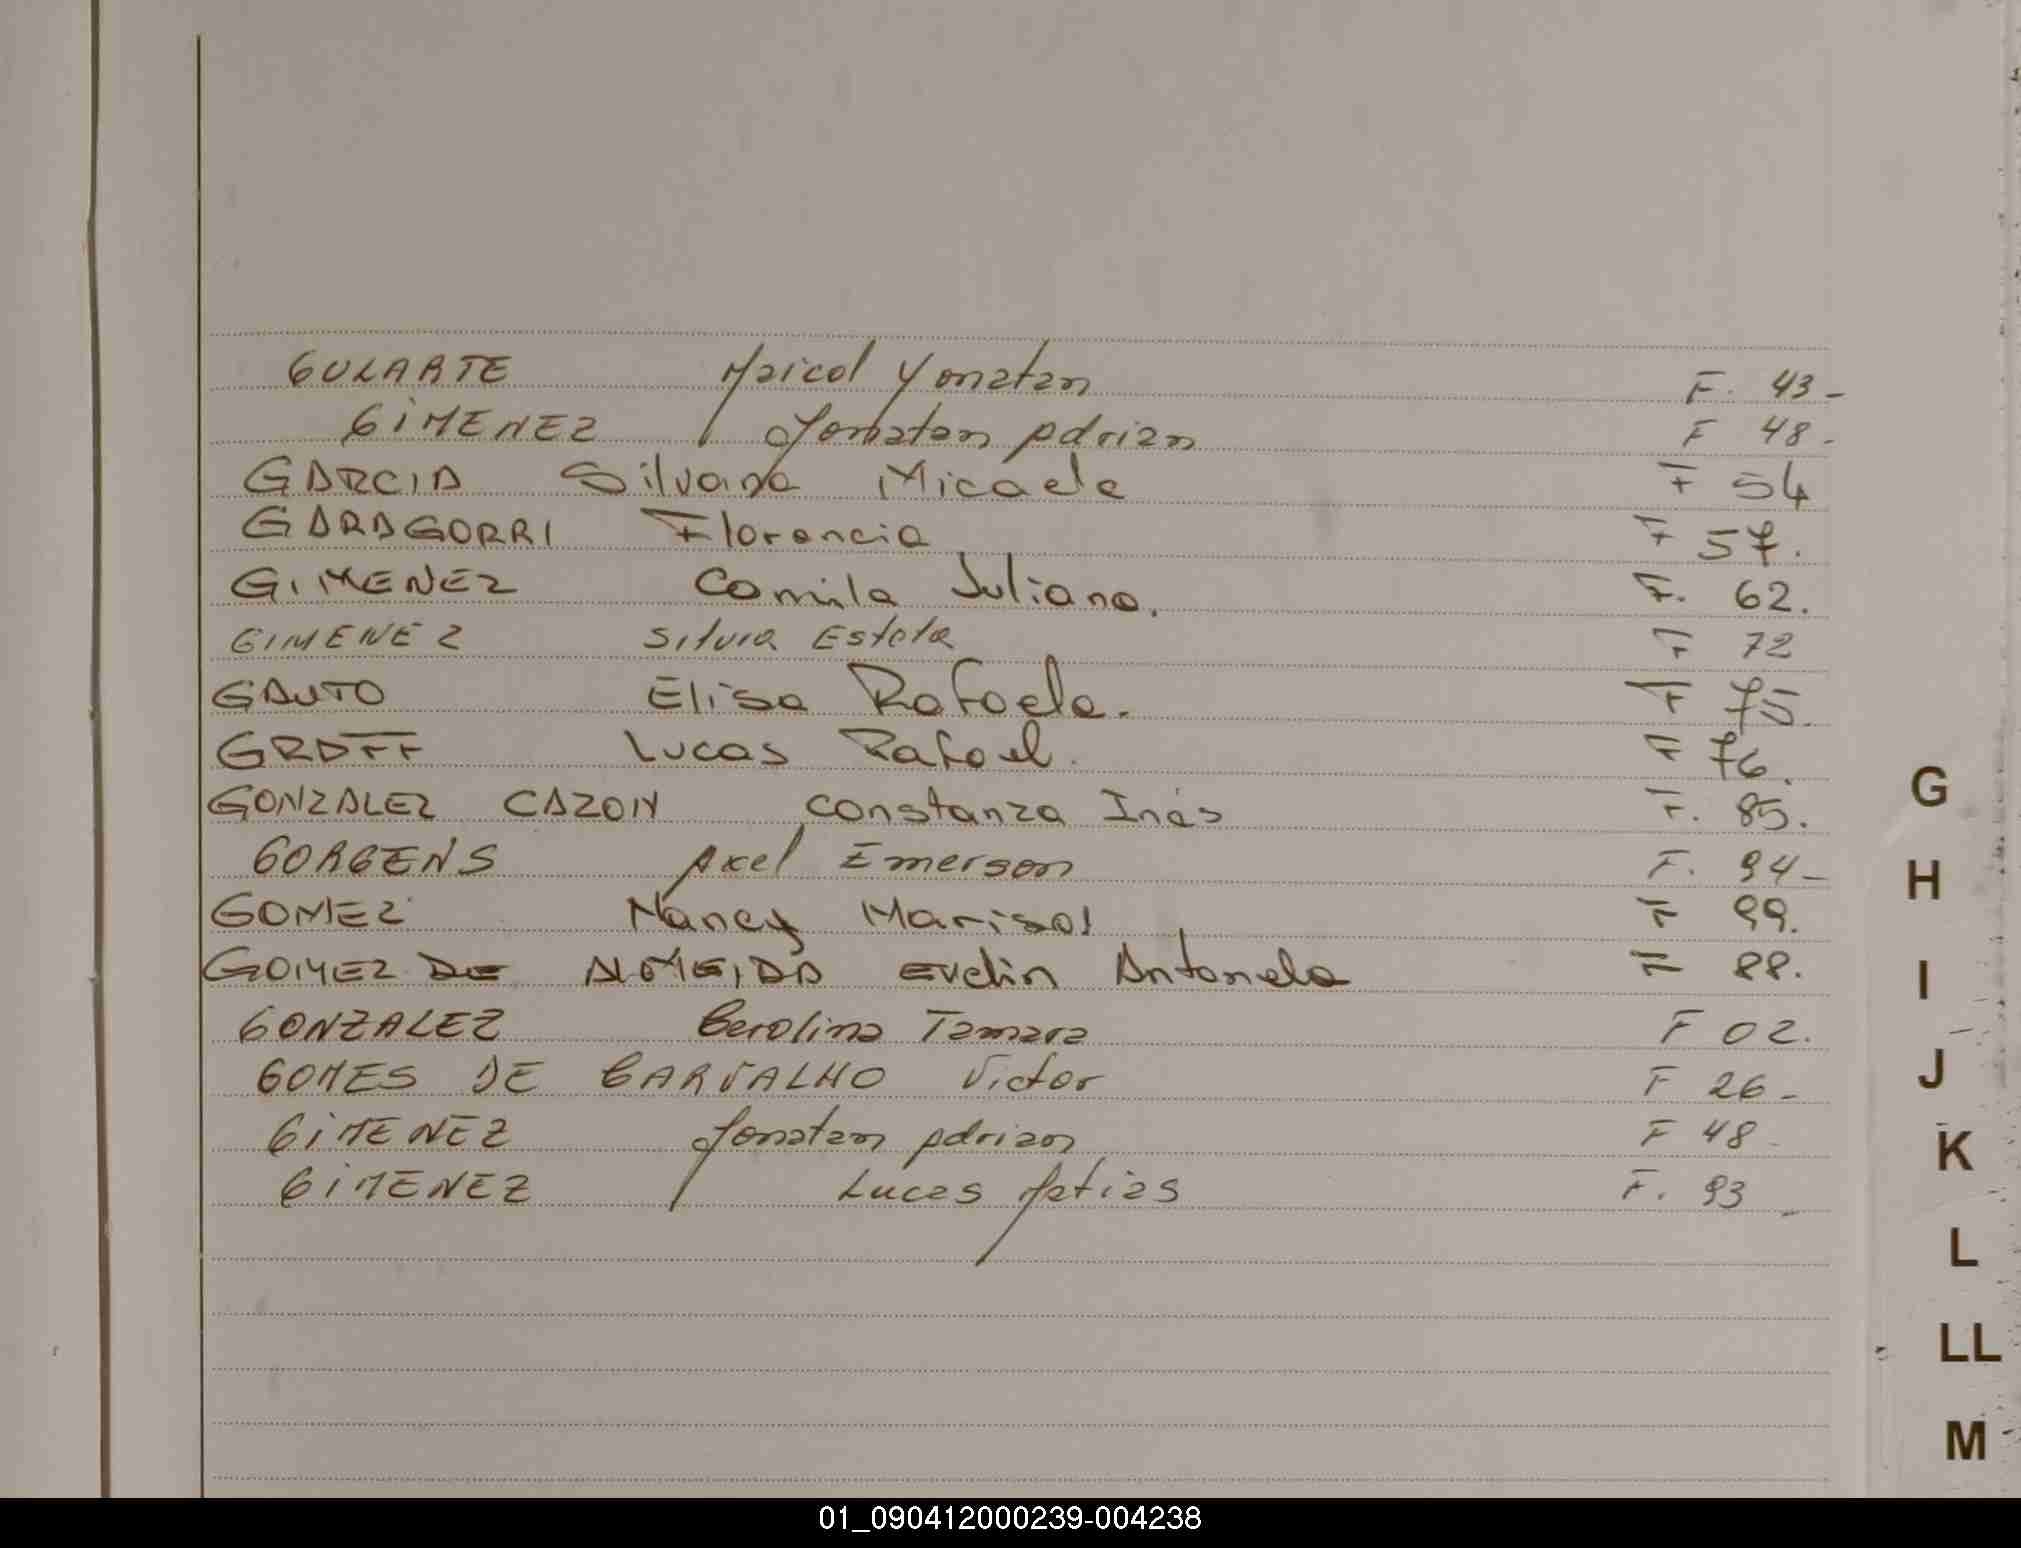 GULARTE Maicol Yonatan F. 43-
GIMENEZ Jonatan Adrian F 48-
GARCIA Silvana Micaela F 54
GARAGORRI Florencia F 57.
GIMENEZ Camila Juliana. F. 62.
GIMENEZ Silvia Estela F 72
GAUTO Elisa Rafaela. F 75.
GRAFF Lucas Rafael. F 76.
GONZALEZ CAZON Constanza Inés F. 85.
GORGENS Axel Emerson F. 94-
GOMEZ Nancy Marisol F 99.
GOMEZ DE ALMEIDA Evelin Antonela F 88.
GONZALEZ Carolina Tamara F 02.
GOMES DE CARVALHO Victor F 26-
GIMENEZ Jonatan Adrian F 48-
GIMENEZ Lucas Matias F. 93-
G
H
I
J
K
L
LL
M
01_090412000239-004238